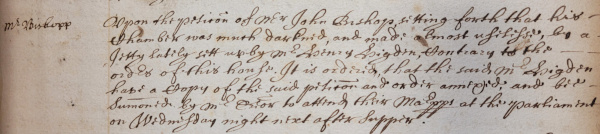 Mr Biskopp
Upon the peticon of Mr John Biskopp setting forth that his
Chamber was much darkned, and made almost uselesse, by a
Jetty lately sett up by Mr Henry Higden, Contrary to the
orders of this house. It is ordered, that the said Mr Higden
have a Copy of the said peticon and order annexed: and bee
Sumoned by Mr to attend their Maspps at the parliament
on Wednesday night next after Supper.